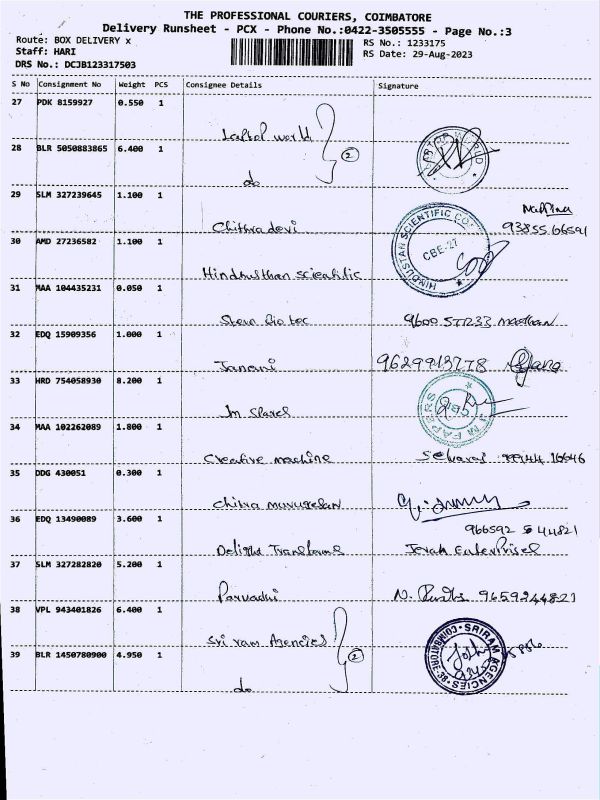 THE PROFESSIONAL COURIERS, COIMBATORE
Delivery Runsheet - PCX - Phone No.:0422-3505555 - Page No.:3
Route: BOX DELIVERY x
RS No.: 1233175
Staff: HARI
RS Date: 29-Aug-2023
DRS No.: DCJB123317503
S No Consignment No Weight PCS Consignee Details Signature
27 PDK 8159927 0.550 1
Laptol world
28 BLR 5050883865 6.400 1
2
do
29 SLM 327239645 1.100 1
Chithradevi 93855 66591
HINDUSTAN SCIENTIFIC CO
CBE-27
30 AMD 27236582 1.100 1
Hindhusthan scientific
31 MAA 104435231 0.050 1
9600 57233
32 EDQ 15909356 1.000 1
Janani 9629913778
33 HRD 754058930 8.200 1
34 MAA 102262089 1.800 1
Creative machine
35 DDG 430051 0.300 1
Chitra murugesan
36 EDQ 13490089 3.600 1
966592 5 44821
Delight
37 SLM 327282820 5.200 1
9659244821
38 VPL 943401826 6.400 1
Sri ram Agencies
SRIRAM AGENCIES
COIMBATORE-38
39 BLR 1450780900 4.950 1
2
do